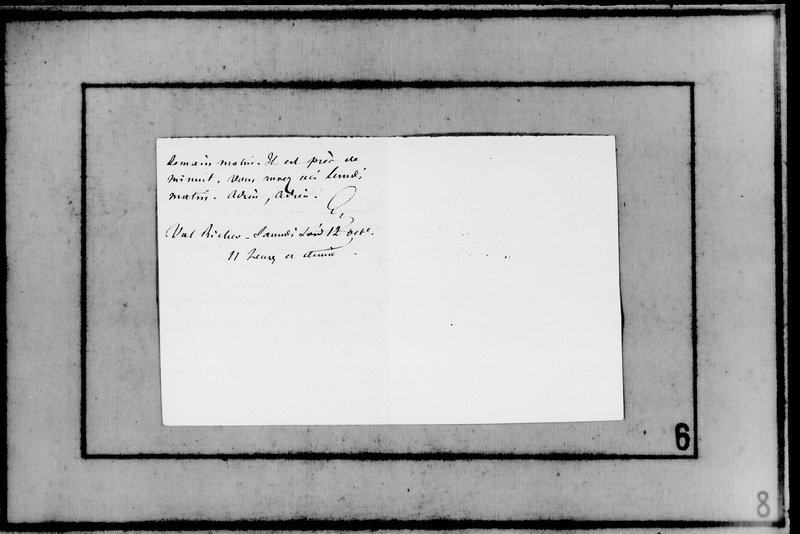 demain matin. Il est près de
minuit. Vous aurez ceci lundi
matin. Adieu, Adieu.
G
Val Richer - Samedi soir 12 octe.
11 heures et demie.
6
8